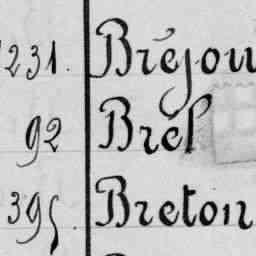 231. Bréjou
92 Brel
395. Breton